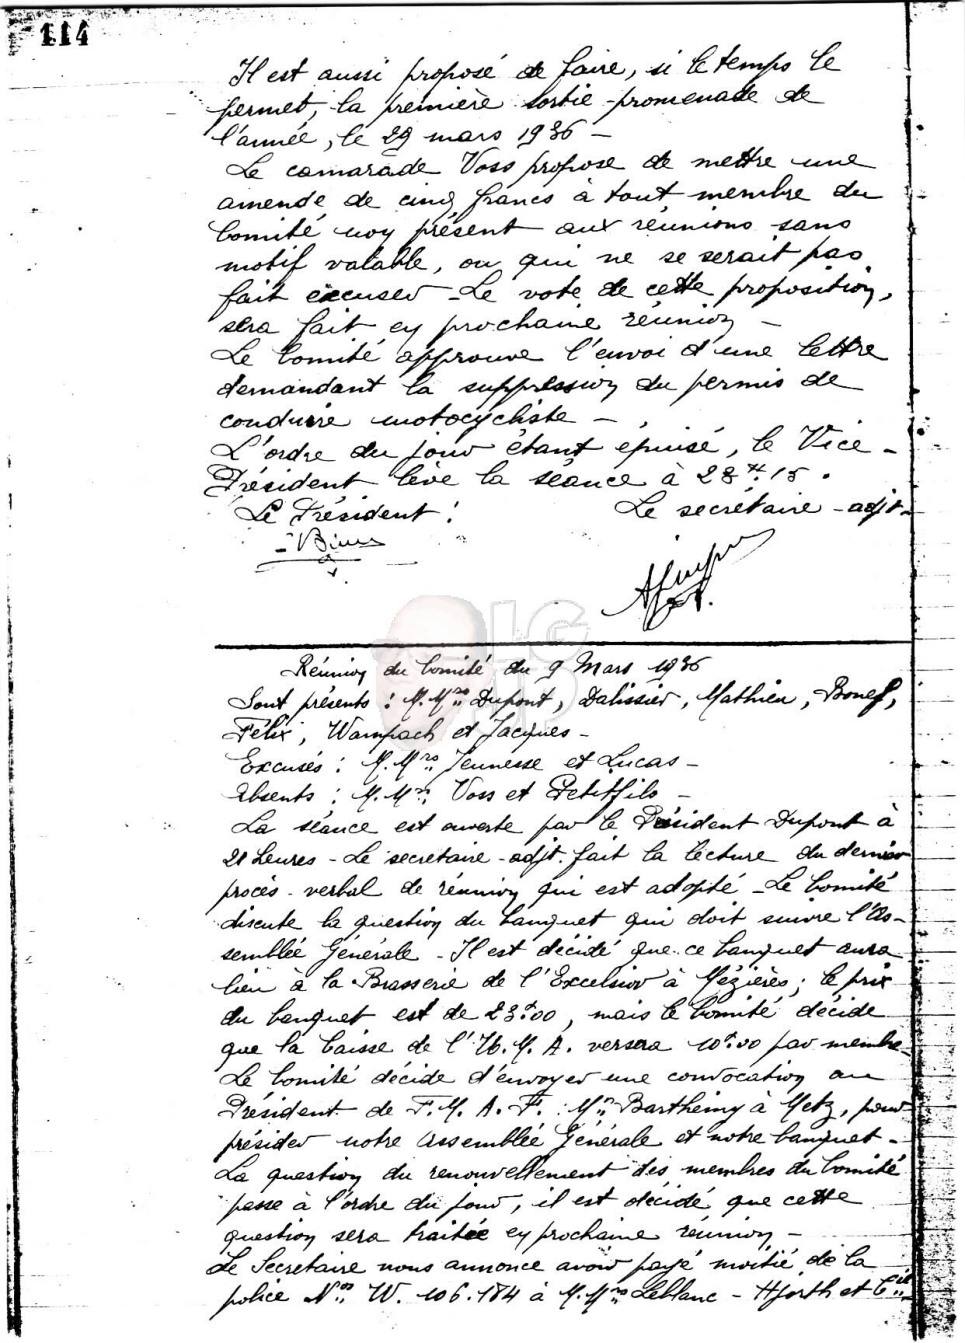 114
Il est aussi proposé de faire, si le temps le
permet, la première sortie-promenade de
l'année, le 29 mars 1936 -
Le camarade Voss propose de mettre une
amende de cinq francs à tout membre du
Comité non présent aux réunions sans
motif valable, ou qui ne se serait pas
fait excuser - Le vote de cette proposition,
sera fait en prochaine réunion -
Le Comité approuve l'envoi d'une lettre
demandant la suppression du permis de
conduire motocycliste -
L'ordre du jour étant épuisé, le Vice-
Président lève la séance à 23H.15.
Le Président : Le secrétaire-adjt-
Réunion du Comité du 9 Mars 1936
Sont présents : M.Mrs Dupont, Dalissier, Mathieu, Bonef,
Félix, Wampach et Jacques -
Excusés : M.Mrs Jeunesse et Lucas -
Absents : M.Mrs Voss et Petitfils -
La séance est ouverte par le Président Dupont à
21 heures - Le secrétaire-adjt. fait la lecture du dernier
procès-verbal de réunion qui est adopté - Le Comité
discute la question du banquet qui doit suivre l'As-
semblée Générale - Il est décidé que ce banquet aura
lieu à la Brasserie de l'Excelsior à Mézières ; le prix
du banquet est de 23f00, mais le Comité décide
que la Caisse de l'U.M.A. versera 10f00 par membre-
Le Comité décide d'envoyer une convocation au
Président de F.M.A.F. Mr Barthémy à Metz, pour
présider notre Assemblée Générale et notre banquet -
La question du renouvellement des membres du Comité
passe à l'ordre du jour, il est décidé que cette
question sera traitée en prochaine réunion -
Le Secrétaire nous annonce avoir payé moitié de la
police No W. 106.184 à M.Mrs Leblanc - Hjorth et Cie